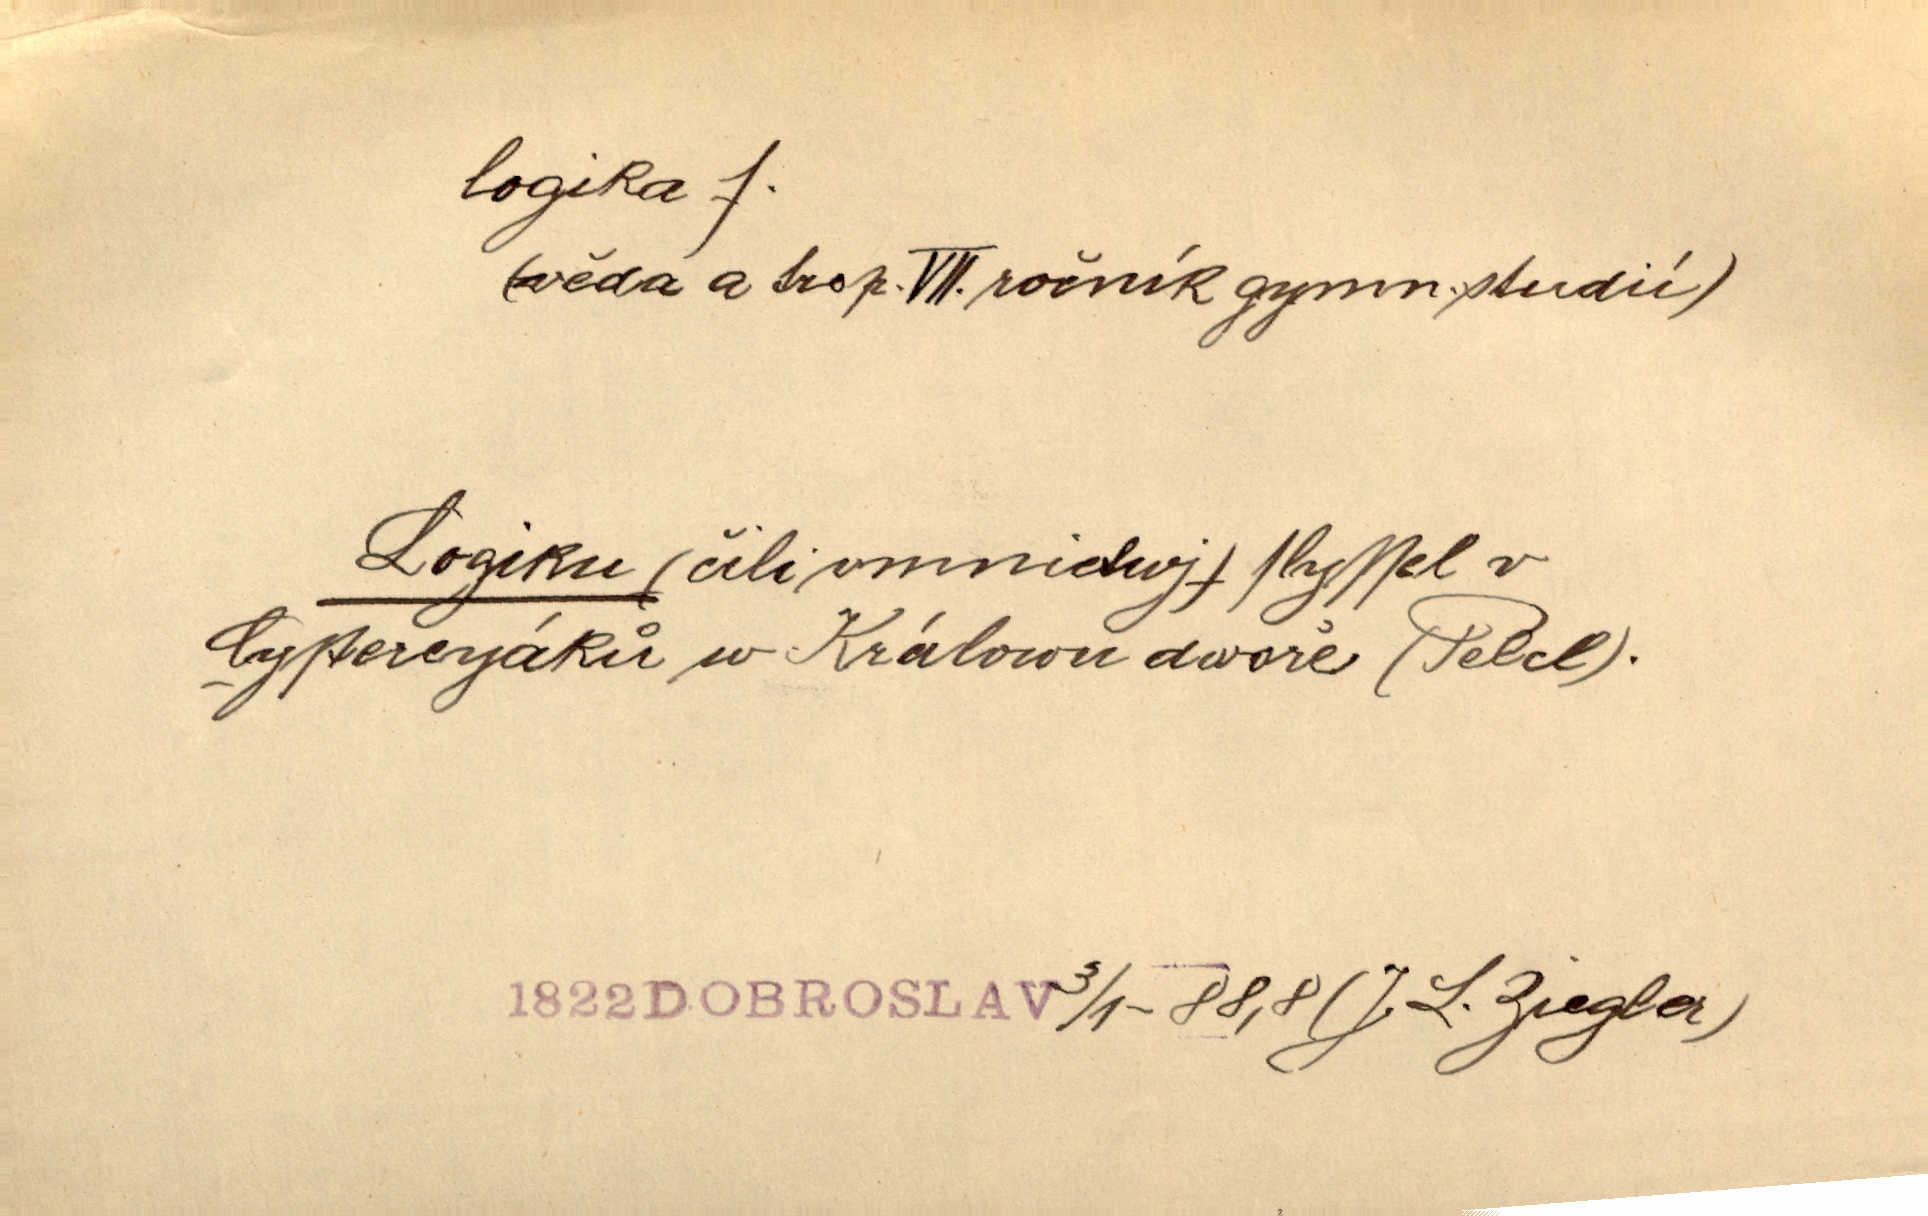 logika f.
(věda a trop. VII. ročník gymn. studií)
Logiku (čili vmnictwj) slyssel v
Cysstercyáků w Králowu dwoře (Pelcl).
1822 DOBROSLAV 3/1 - 88,8 (J. L. Ziegler)